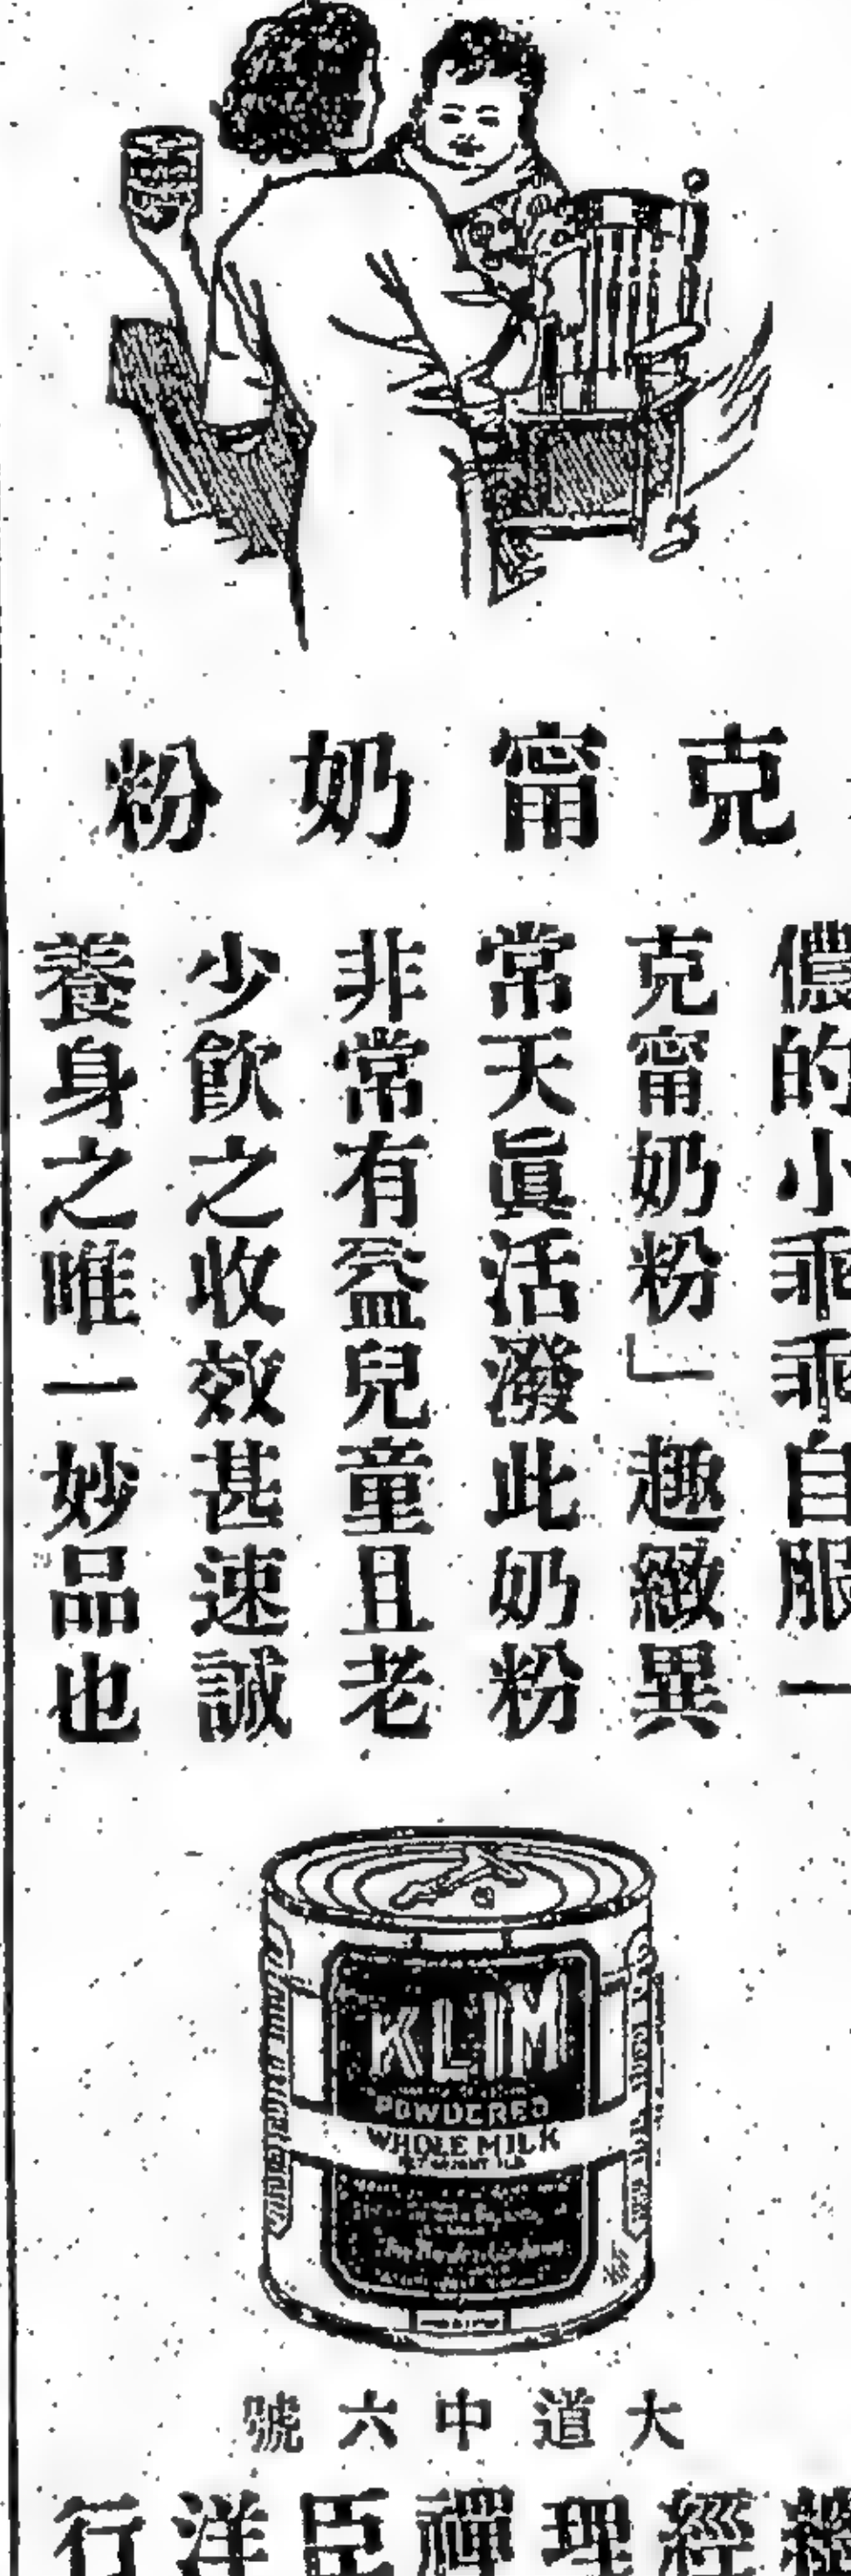 克甯奶粉
儂的小乖乖自服一
克甯奶粉」趣緻異
常天眞活潑此奶粉
非常有益兒童且老
少飲之收效甚速誠
養身之唯一妙品也
KLIM
POWDERED
WHOLE MILK
大道中六號
總經理禪臣洋行